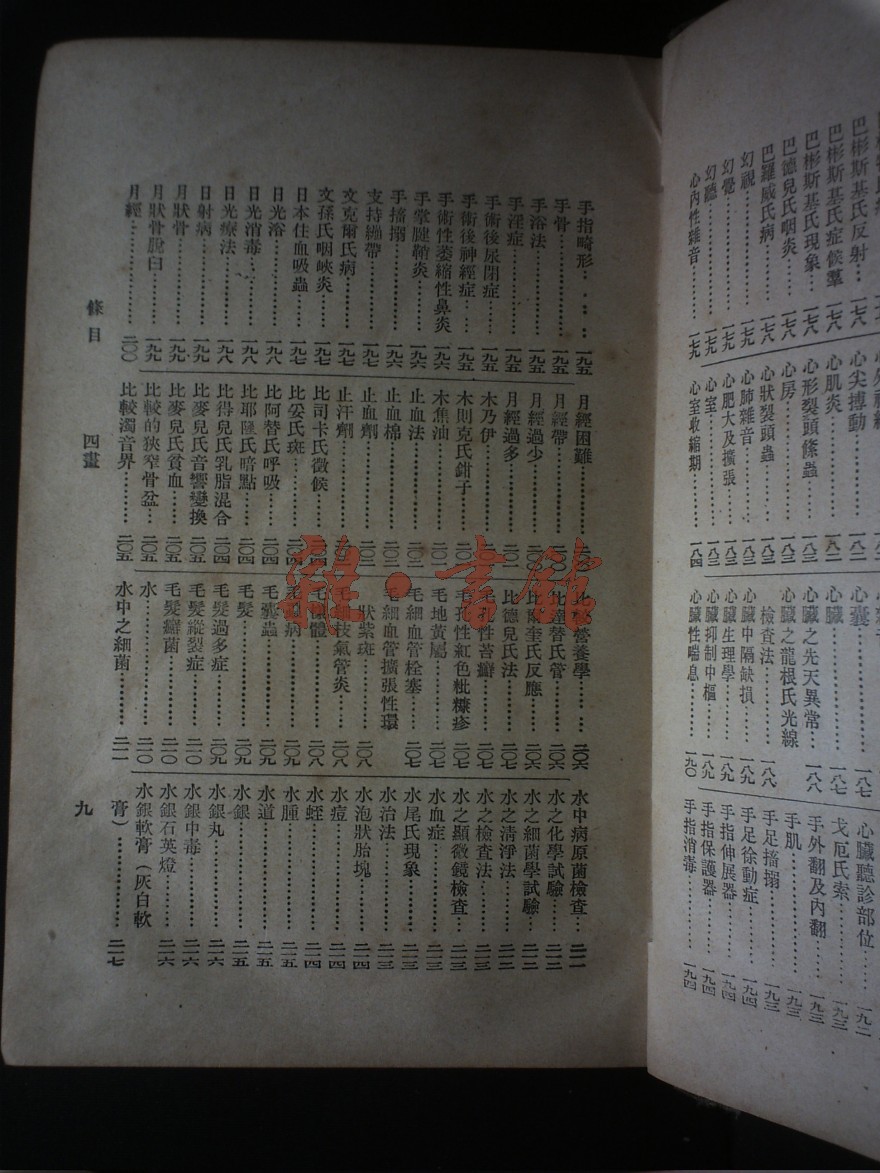 巴彬斯基氏反射…一七八
巴彬斯基氏症候羣一七八
巴彬斯基氏現象…一七八
巴德兒氏咽炎……一七八
巴羅威氏病………一七八
幻視………………一七八
幻覺………………一七八
幻聽………………一七九
心內性雜音………一七九
心尖搏動…………一八二
心肌炎……………一八二
心形裂頭絛蟲……一八三
心房………………一八三
心狀裂頭蟲………一八三
心肺雜音…………一八三
心肥大及擴張……一八三
心室………………一八三
心室收縮期………一八四
心囊………………一八七
心臟………………一八七
心臟之先天異常…一八八
心臟之龍根氏光線
檢查法……………一八八
心臟中隔缺損……一八九
心臟生理學………一八九
心臟抑制中樞……一八九
心臟性喘息………一九〇
心臟聽診部位……一九二
戈厄氏索…………一九三
手外翻及內翻……一九三
手肌………………一九三
手足搐搦…………一九三
手足徐動症………一九四
手指伸展器………一九四
手指保護器………一九四
手指消毒…………一九四
手指畸形…………一九五
手骨………………一九五
手浴法……………一九五
手淫症……………一九五
手術後尿閉症……一九五
手術後神經症……一九五
手術性萎縮性鼻炎一九六
手掌腱鞘炎………一九六
手搐搦……………一九六
支持繃帶…………一九七
文克爾氏病………一九七
文孫氏咽峽炎……一九七
日本住血吸蟲……一九七
日光浴……………一九八
日光消毒…………一九八
日光療法…………一九八
日射病……………一九九
月狀骨……………一九九
月狀骨脫臼………一九九
月經………………二〇〇
月經困難
月經帶
月經過少
月經過多
木乃伊
木則克氏鉗子
木焦油
止血法
止血棉
止血劑
止汗劑
比司卡氏徵候
比妥氏斑…………二〇四
比阿替氏呼吸……二〇四
比耶隆氏暗點……二〇四
比得兒氏乳脂混合二〇四
比麥兒氏音響變換二〇五
比麥兒氏貧血……二〇五
比較的狹窄骨盆…二〇五
比較濁音界………二〇五
營養學……………二〇六
替氏管……………二〇六
比爾奎氏反應……二〇六
比德兒氏法………二〇七
毛孔性苔癬………二〇七
毛孔性紅色粃糠疹二〇七
毛地黃屬…………二〇七
毛細血管栓塞……二〇七
毛細血管擴張性環
狀紫斑……………二〇八
毛細枝氣管炎……二〇八
體…………………二〇八
病…………………二〇九
毛囊蟲……………二〇九
毛髮………………二〇九
毛髮過多症………二〇九
毛髮縱裂症………二一〇
毛髮癬菌…………二一〇
水…………………二一〇
水中之細菌………二一一
水中病原菌檢查…二一一
水之化學試驗……二一二
水之細菌學試驗…二一二
水之清淨法………二一二
水之檢查法………二一三
水之顯微鏡檢查…二一三
水血症……………二一三
水尾氏現象………二一三
水治法……………二一三
水泡狀胎塊………二一四
水痘………………二一四
水蛭………………二一四
水腫………………二一五
水道………………二一五
水銀………………二一五
水銀丸……………二一六
水銀中毒…………二一六
水銀石英燈………二一六
水銀軟膏（灰白軟
膏）………………二一七
條目　四畫　九
雜·書館